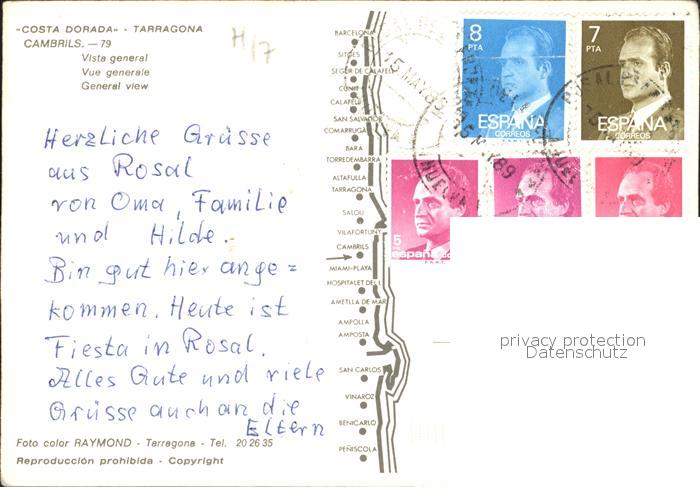 «COSTA DORADA» - TARRAGONA
CAMBRILS. — 79
Vista general
Vue generale
General view
H/7
Herzliche Grüsse
aus Rosal
von Oma, Familie
und Hilde.
Bin gut hier ange=
kommen. Heute ist
Fiesta in Rosal.
Alles Gute und viele
Grüsse auch an die
Eltern
Foto color RAYMOND - Tarragona - Tel. 20 26 35
Reproducción prohibida - Copyright
BARCELONA
SITGES
SEGUR DE CALAFELL
CUNIT
CALAFELL
SAN SALVADOR
COMARRUGA
BARA
TORREDEMBARRA
ALTAFULLA
TARRAGONA
SALOU
VILAFORTUNY
CAMBRILS
MIAMI-PLAYA
HOSPITALET DEL
AMETLLA DE MAR
AMPOLLA
AMPOSTA
SAN CARLOS
VINAROZ
BENICARLO
PEÑISCOLA
8
PTA
ESPAÑA
CORREOS
7
PTA
ESPAÑA
CORREOS
5
españa
privacy protection
Datenschutz